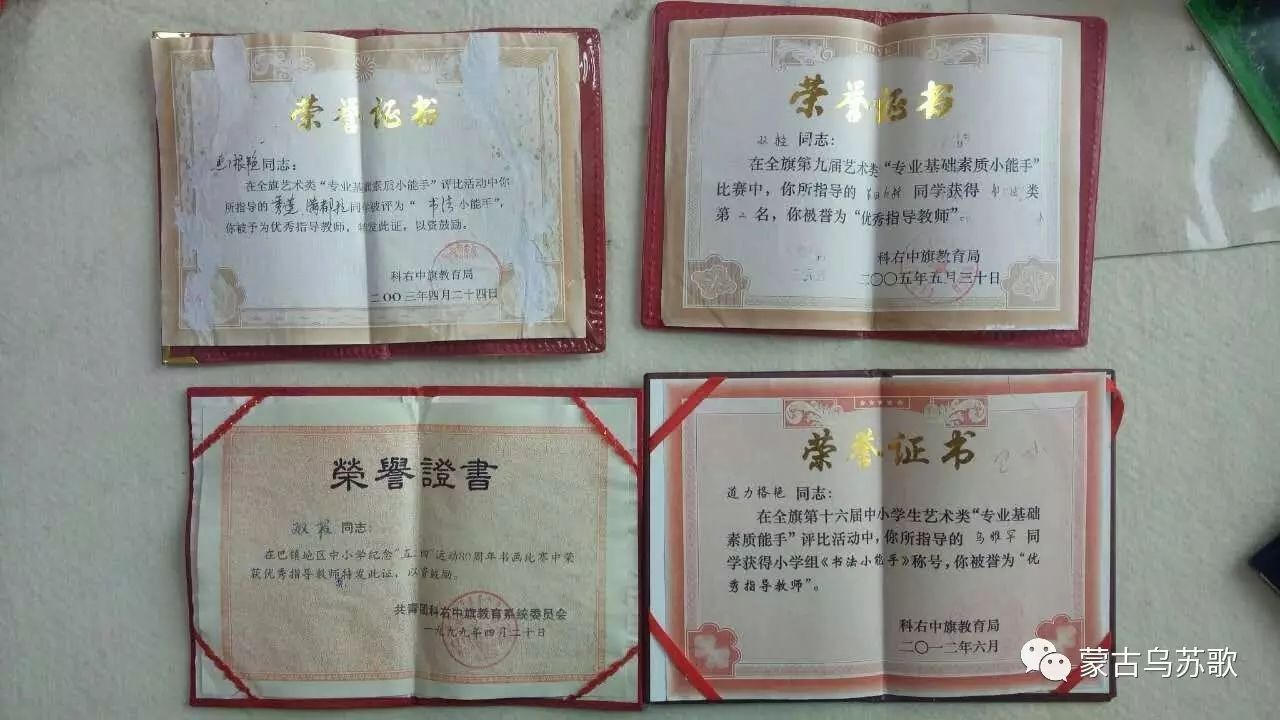 荣誉证书
同志:
在全旗艺术类“专业基础素质小能手”评比活动中你
所指导的 同学被评为“书法小能手”,
你被予为优秀指导教师,特发此证,以资鼓励。
科右中旗教育局
二〇〇三年四月二十四日
荣誉证书
同志:
在全旗第九届艺术类“专业基础素质小能手”
比赛中,你所指导的 同学获得 类
第二名,你被誉为“优秀指导教师”。
科右中旗教育局
二〇〇五年五月三十日
榮譽證書
同志:
在巴镇地区中小学纪念“五四”运动80周年书画比赛中荣
获优秀指导教师特发此证,以资鼓励。
共青团科右中旗教育系统委员会
一九九九年四月二十日
荣誉证书
道力格艳 同志:
在全旗第十六届中小学生艺术类“专业基础
素质能手”评比活动中,你所指导的 乌雅罕 同
学获得小学组《书法小能手》称号,你被誉为“优
秀指导教师”。
科右中旗教育局
二〇一二年六月
蒙古乌苏歌